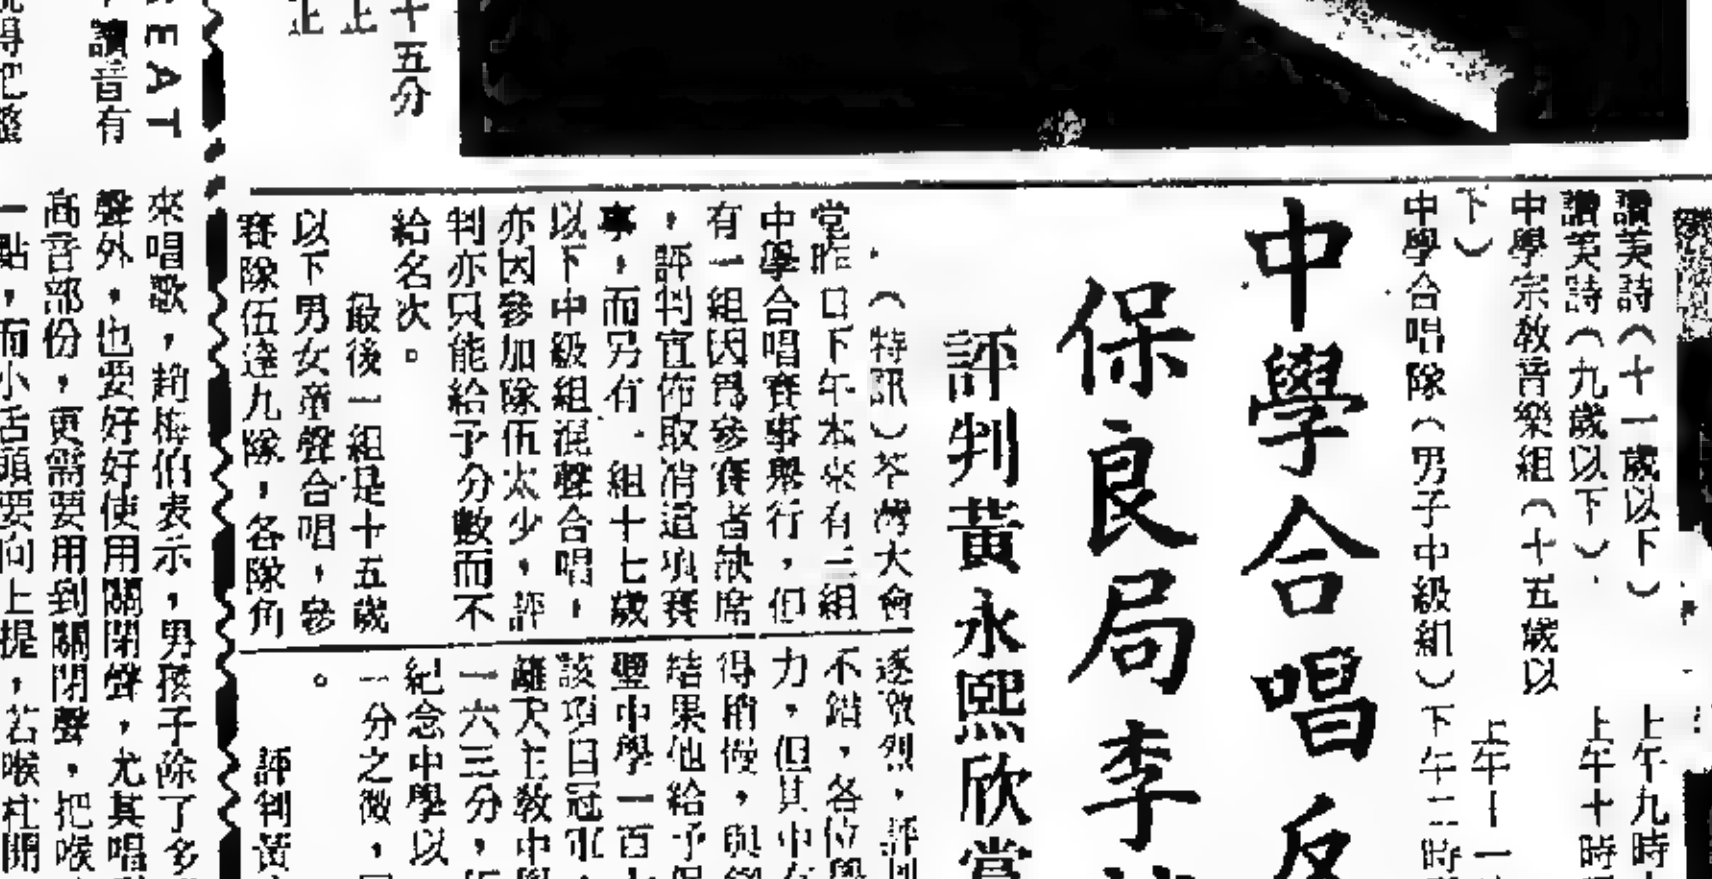 讚美詩(十一歲以下)
上午九時
讚美詩(九歲以下)
上午十時
中學宗教音樂組(十五歲以
下)
上午十一
中學合唱隊(男子中級組)下午二時
中學合唱
保良局李
評判黃永熙欣賞
(特訊)荃灣大會
堂昨日下午本來有三組
中學合唱賽事舉行,但
有一組因爲參賽者缺席
,評判宣佈取消這項賽
事,而另有一組十七歲
以下中級組混聲合唱,
亦因參加隊伍太少,評
判亦只能給予分數而不
給名次。
最後一組是十五歲
以下男女童聲合唱,參
賽隊伍達九隊,各隊角
逐激烈,評判
不錯,各位
力,但其中
得稍慢,與
結果他給予
聖中學一百
該項目冠軍
離天主教中
一六三分,
紀念中學以
一分之微,
。
評判黃
十五分
正
正
SEAT
讀音有
來唱歌,趙梅伯表示,男孩子除了多
聲外,也要好好使用關閉聲,尤其唱
高音部份,更需要用到關閉聲,把喉
一點,而小舌頭要向上提,若喉